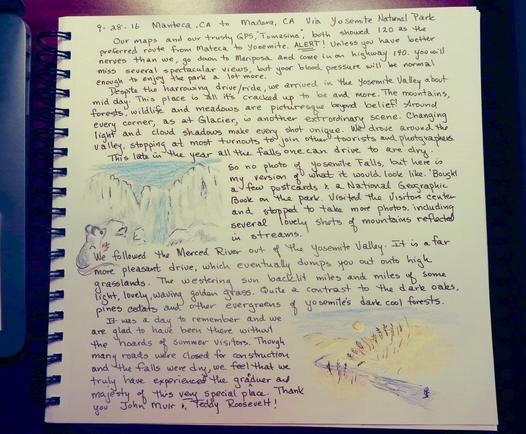 9-28-16 Manteca, CA to Madera, CA Via Yosemite National Park
Our maps and our trusty GPS, Tomasina, both showed 120 as the
preferred route from Mateca to Yosemite. ALERT! Unless you have better
nerves than we, go down to Mariposa and come in on highway 140. You will
miss several spectacular views, but your blood pressure will be normal
enough to enjoy the park a lot more.
Despite the harrowing drive/ride, we arrived in the Yosemite Valley about
mid day. This place is all it's cracked up to be and more. The mountains,
forests, wildlife and meadows are picturesque beyond belief! Around
every corner, as at Glacier, is another extrordinary scene. Changing
light and cloud shadows make every shot unique. We drove around the
valley, stopping at most turnouts to join other tourists and photographers.
This late in the year all the falls one can drive to are dry.
So no photo of Yosemite Falls, but here is
my version of what it would look like. Bought
a few postcards & a National Geographic
Book on the park. Visited the visitors center
and stopped to take more photos, including
several lovely shots of mountains reflected
in streams.
We followed the Merced River out of the Yosemite Valley. It is a far
more pleasant drive, which eventually dumps you out onto high
grasslands. The westering sun backlit miles and miles of some
light, lovely, waving golden grass. Quite a contrast to the dark oaks,
pines cedars and other evergreens of Yosemite's dark cool forests.
It was a day to remember and we
are glad to have been there without
the hoards of summer visitors. Though
many roads were closed for construction
and the falls were dry, we feel that we
truly have experienced the grandeur and
majesty of this very special place. Thank
you John Muir & Teddy Roosevelt!